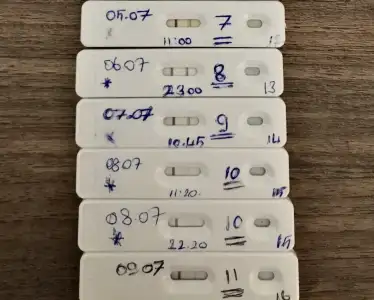 05.07 7
11:00
06.07 8
23.00 13
07.07 9
10.45 14
08.07 10
11:20. 15
08.07 10
22.20 15
09.07 11